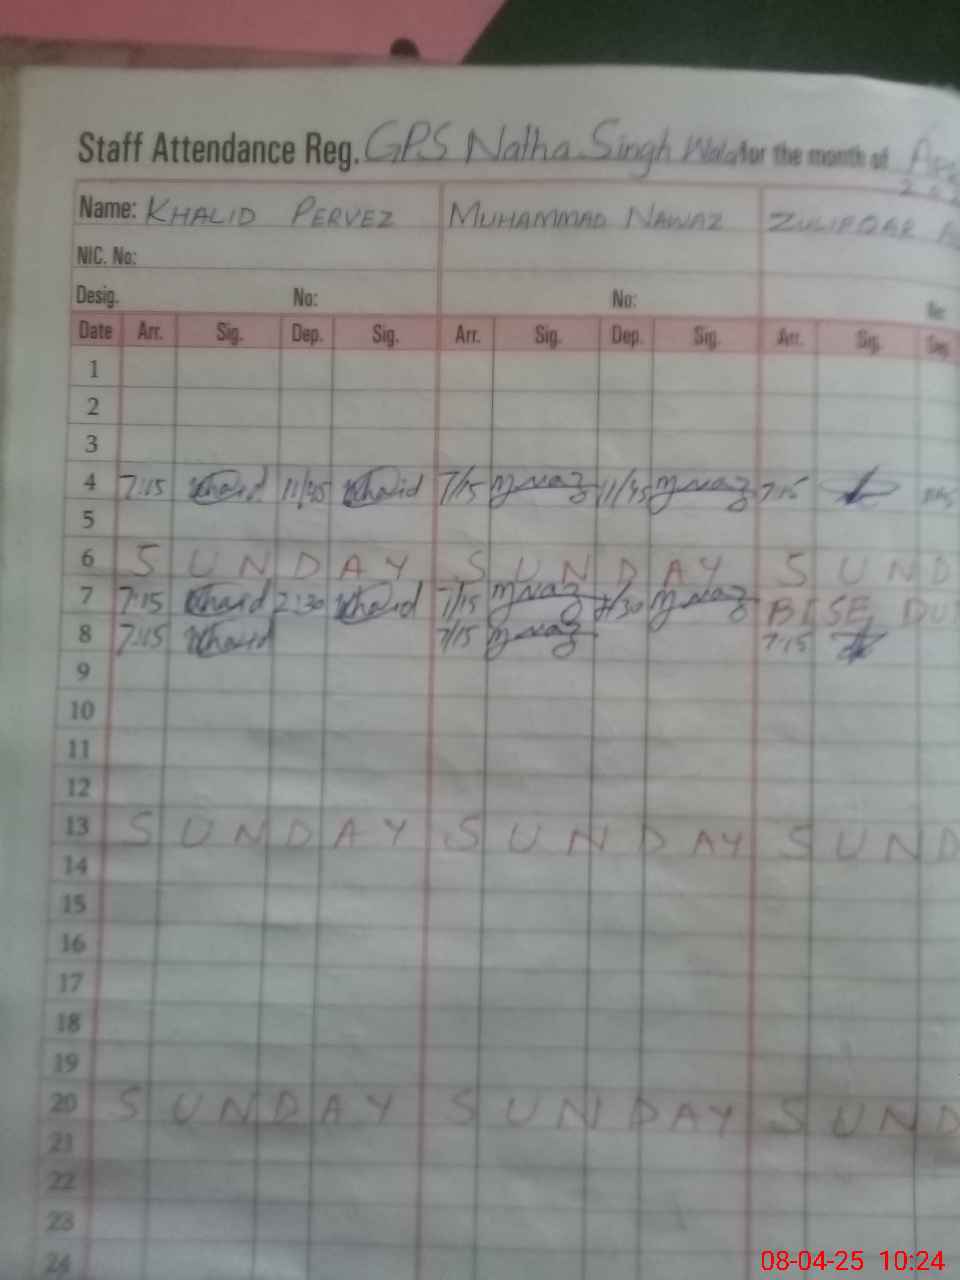 Staff Attendance Reg. GPS Natha Singh Wala for the month of
Name: KHALID PERVEZ MUHAMMAD NAWAZ ZULIFQAR
NIC. No:
Desig. No: No: No:
Date Arr. Sig. Dep. Sig. Arr. Sig. Dep. Sig. Arr. Sig. Dep.
1
2
3
4 7:15 Khalid 11/45 Khalid 7/15 M.Nawaz 11/45 M.Nawaz 7:15
5
6 SUNDAY SUNDAY SUND
7 7:15 Khalid 2:30 Khalid 7/15 M.Nawaz /30 M.Nawaz BISE DU
8 7:15 Khalid 7/15 M.Nawaz 7:15
9
10
11
12
13 SUNDAY SUNDAY SUND
14
15
16
17
18
19
20 SUNDAY SUNDAY SUND
21
22
23
24
08-04-25 10:24